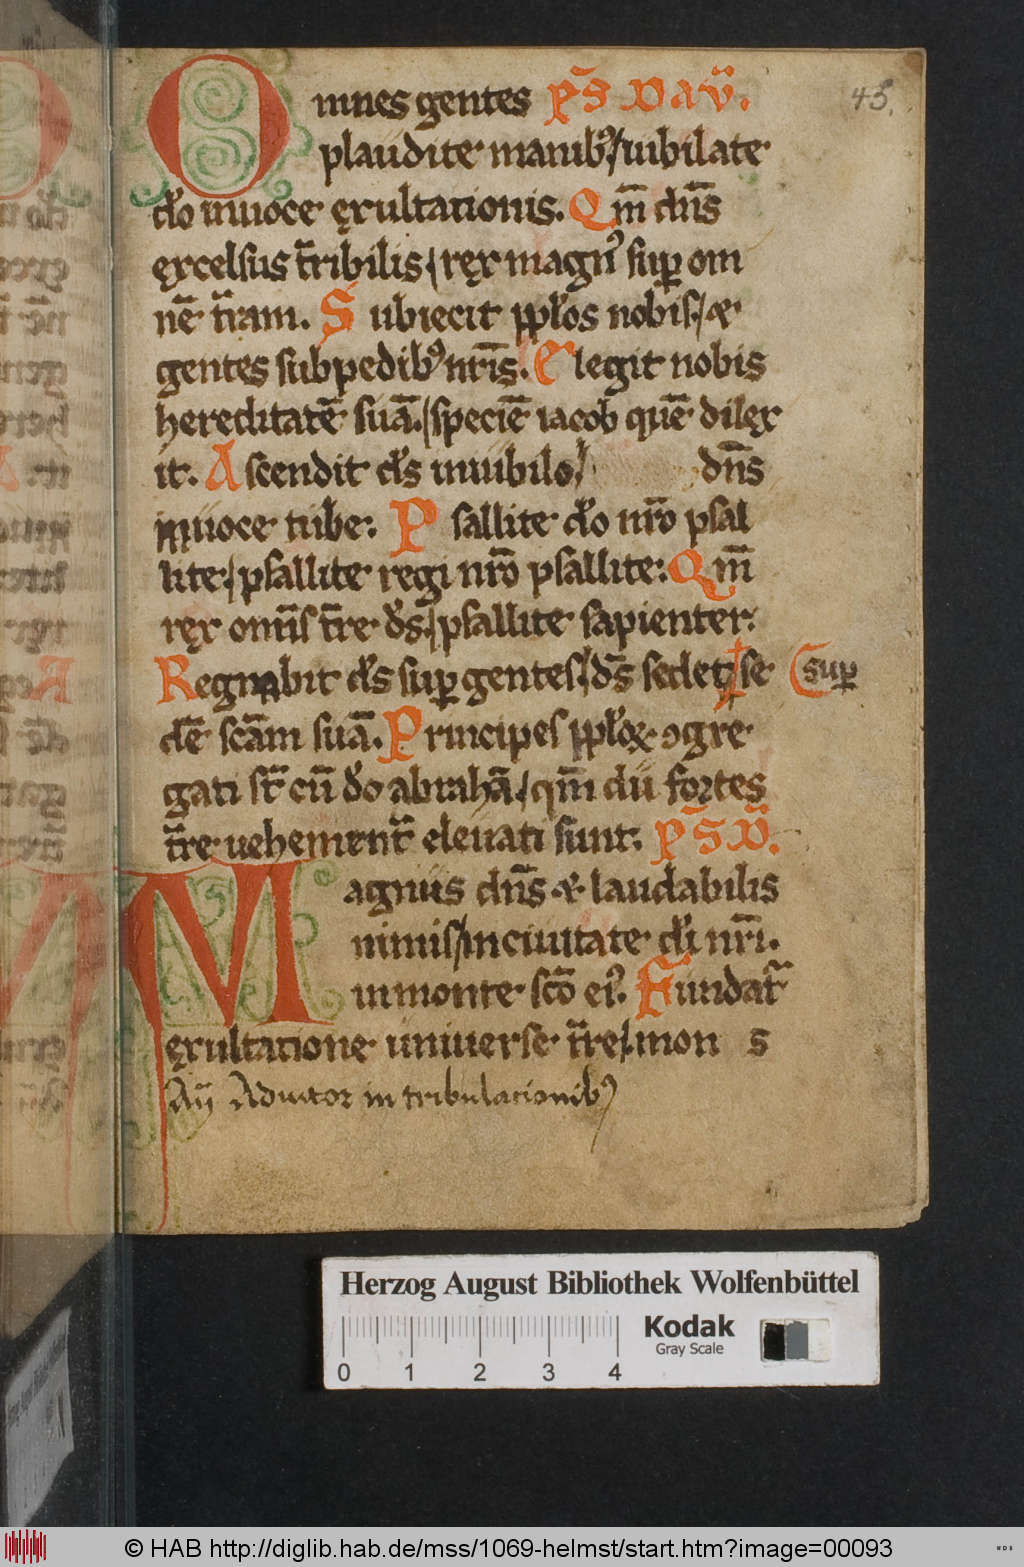 Omnes gentes p̄s dav̈.
plaudite manibꝰ / iubilate
dō in uoce exultationis. Qm̄ dn̄s
excelsus t̄ribilis / rex magnꝰ suꝑ om
nē t̄ram. Subiecit pp̄los nobis / &
gentes sub pedibꝰ nr̄is. Elegit nobis
hereditatē suā. / speciē iacob quē dilex
it. Ascendit d̄s in iubilo / dn̄s
in uoce tube. Psallite dō nr̄o psal
lite / psallite regi nr̄o psallite. Qm̄
rex om̄is t̄re d̄s / psallite sapienter.
Regnabit d̄s suꝑ gentes / d̄s sedet se suꝑ
dē sc̄am suā. Principes pp̄loꝝ ꝯgre
gati st̄ cū dō abrahā / qm̄ dii fortes
t̄re uehement̄ eleuati sunt. p̄s d̄.
Magnus dn̄s & laudabilis
nimis / in ciuitate d̄i nr̄i.
in monte sc̄o eiꝰ. Fundat̄
exultatione uniuerse t̄re / mon s
Aū Adiutor in tribulacionibꝰ
45.
Herzog August Bibliothek Wolfenbüttel
Kodak
Gray Scale
0 1 2 3 4
© HAB http://diglib.hab.de/mss/1069-helmst/start.htm?image=00093